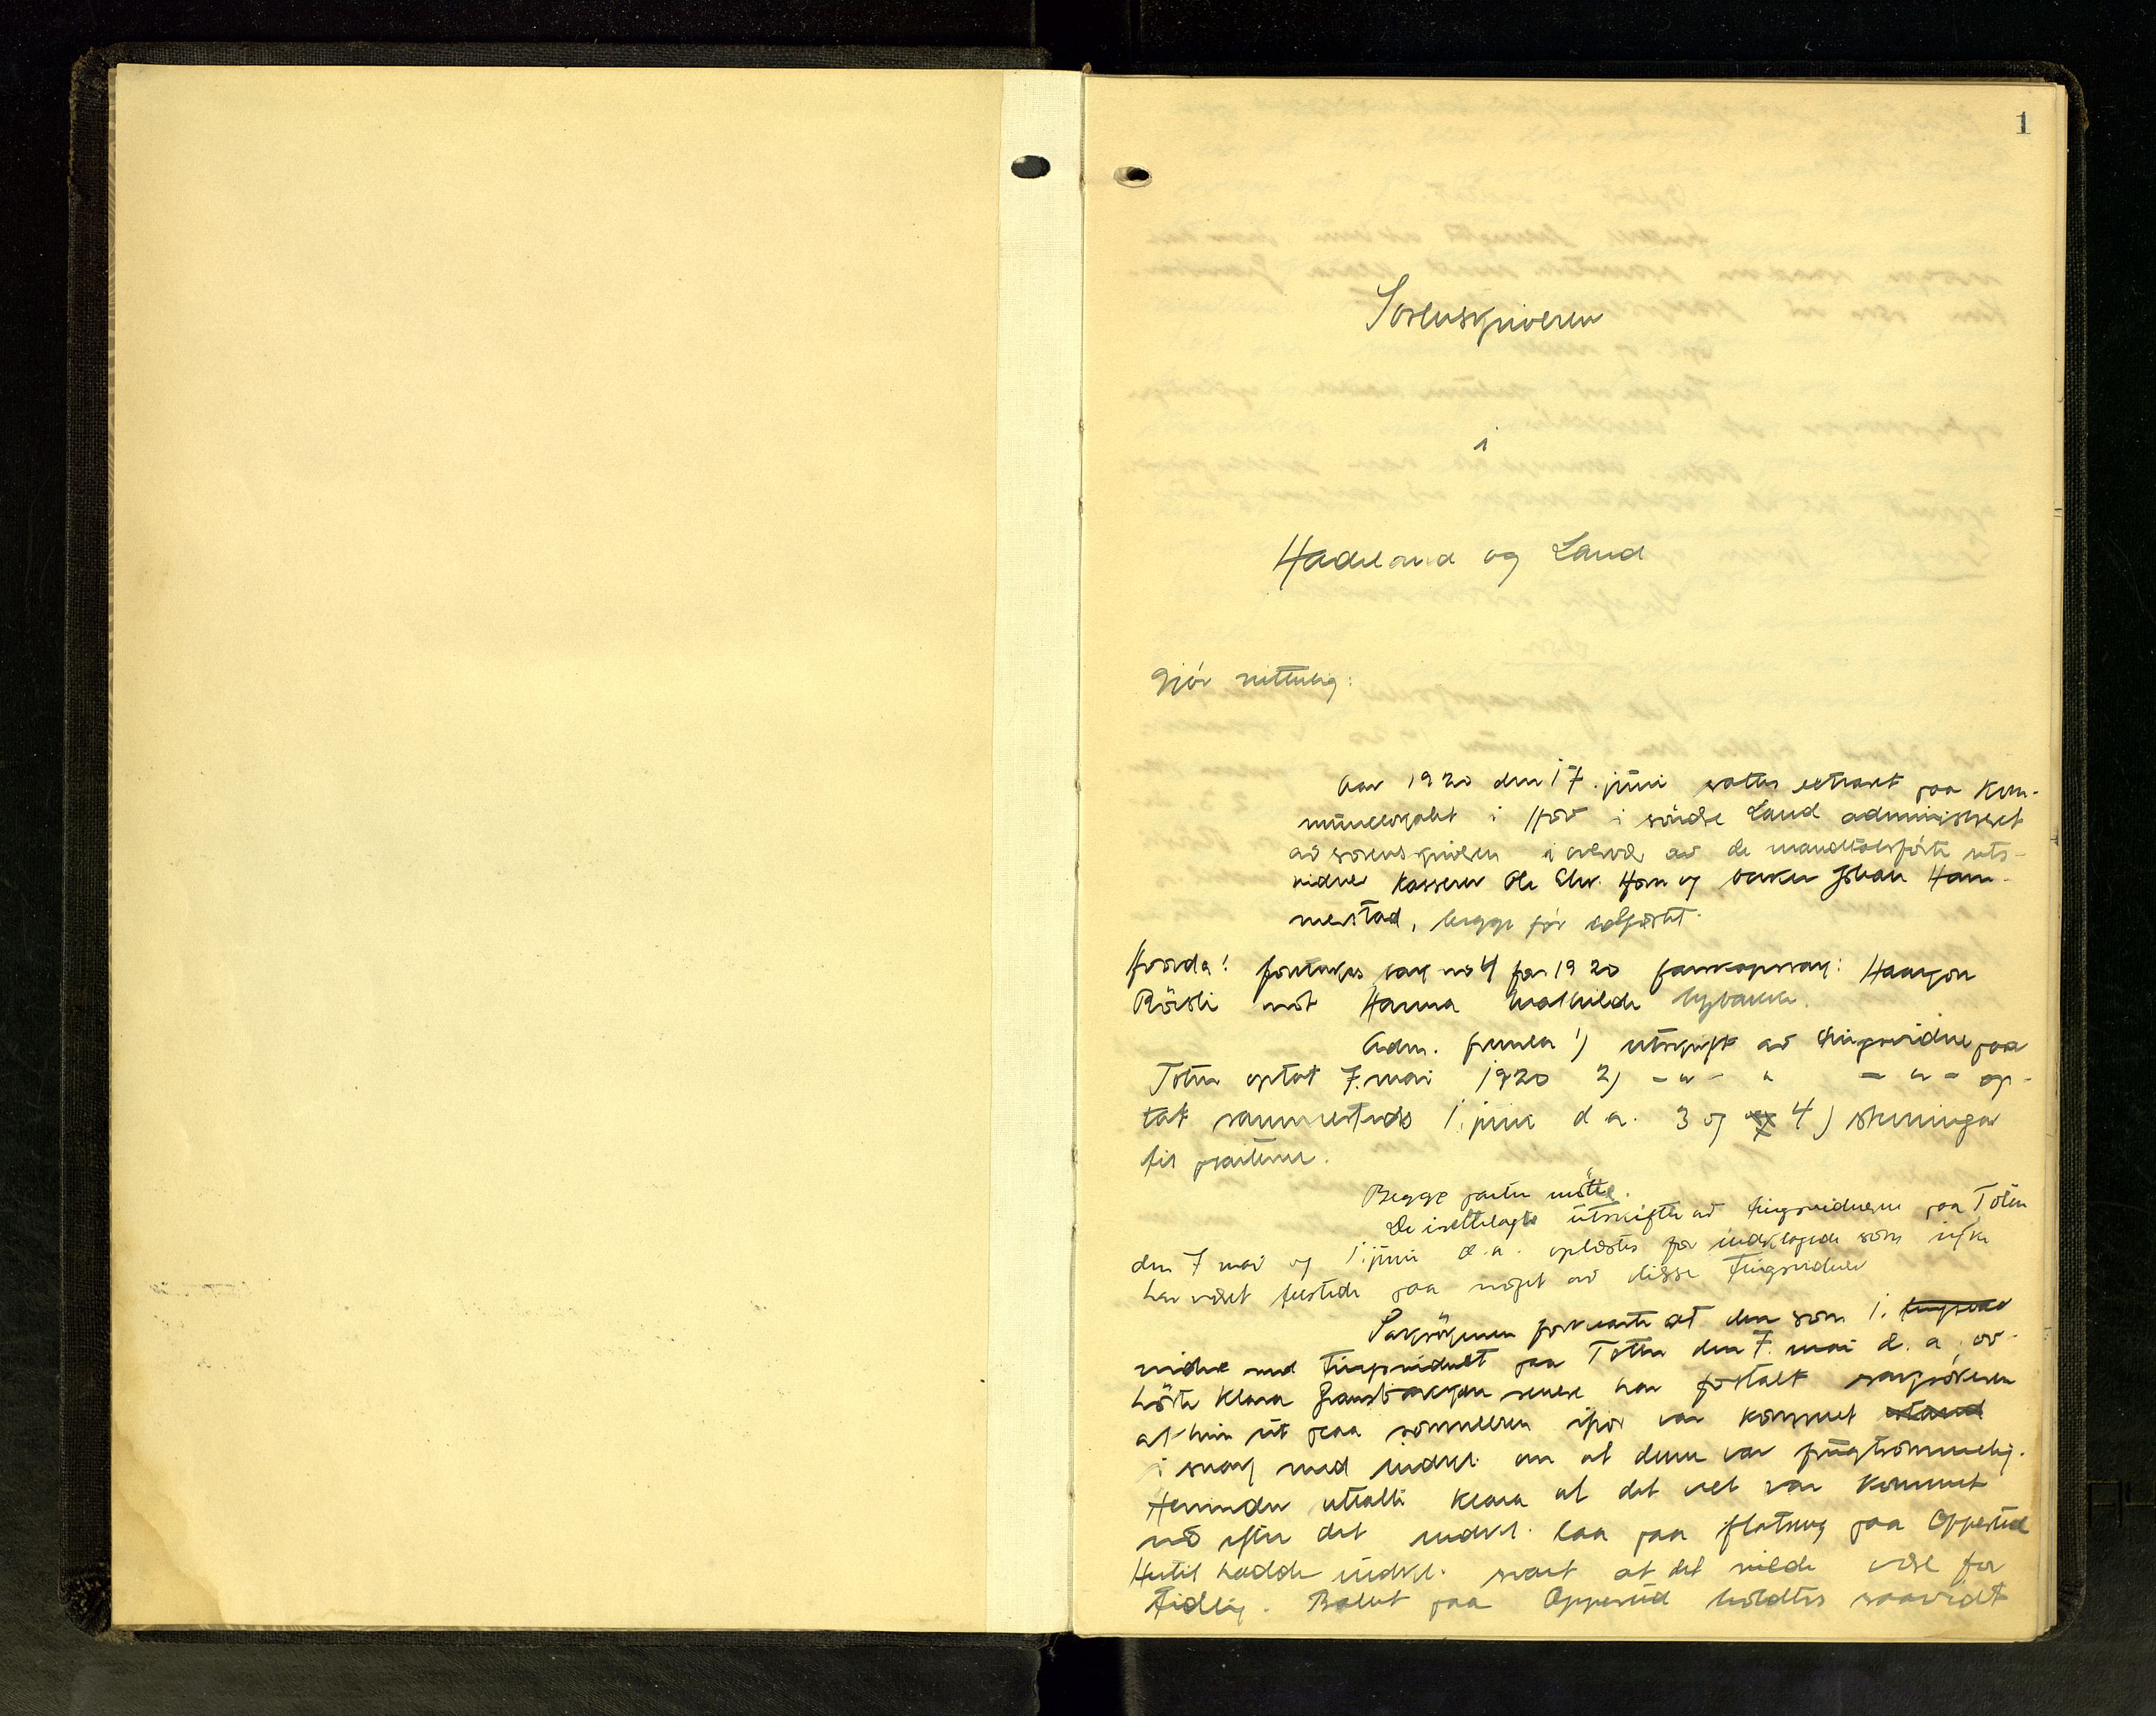 1
Sorenskriveren
i
Hadeland og Land
Gjör vitterlig:
Aar 1920 den 17. juni sattes extraret paa Kom-
munelokalet i Hov i söndre Land administreret
av sorenskriveren i overvær av de mandtalsförte rets-
vidner Kasserer Ole Chr. Horn og Johan Ham-
merstad, begge för edfæstet.
Hvorda! foretokes sak no 4 for 1920 farskapssak: Haakon
Rörsli mot Hanna Mathilde
Adm. fremla 1) utskrift av tingsvidne paa
Toten optat 7. mai 1920 2) - " - " - " - op-
tat sammesteds 1. juni d a. 3 og 4) stevninger
til parterne.
Begge parter mötte.
De iretlelagte utskrifter av tingsvidnerne paa Toten
den 7 mai og 1. juni d.a. oplæstes for indklagede som ikke
har været tilstede paa noget av disse tingsvidner
Saksökeren forklarte at den som 1. tingsvid
vidne ved tingsvidnet paa Toten den 7. mai d. a. av-
hörte Klara senere har fortalt saksökeren
at hun ut paa sommeren ifjor var kommet istand
i snak med indkl. om at denne var frugtsommelig.
Herunder uttalte Klara at det vel var kommet
ved efter det indkl. laa paa flatseng paa Opperud
Hertil hadde indkl. svart at det vilde være for
tidlig. Ballet paa Opperud holdtes saavidt